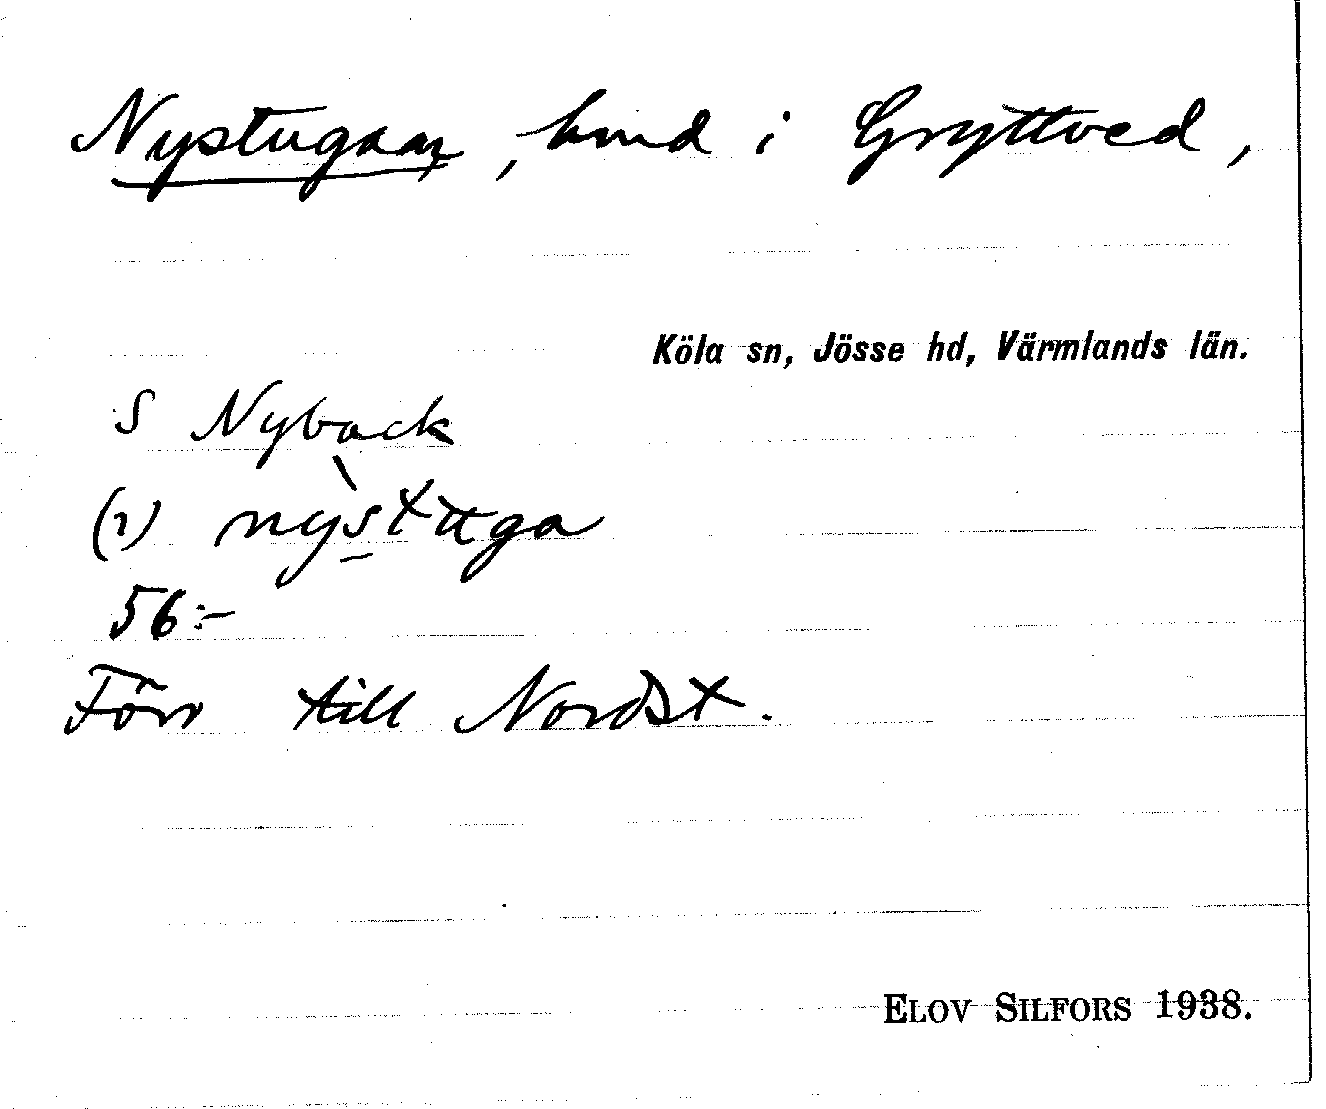 Nystugan, hmd i Gryttved,
Köla sn, Jösse hd, Värmlands län.
S Nyback
(i) nỳstuga
56:-
Förr till Nordst.
ELOV SILFORS 1938.